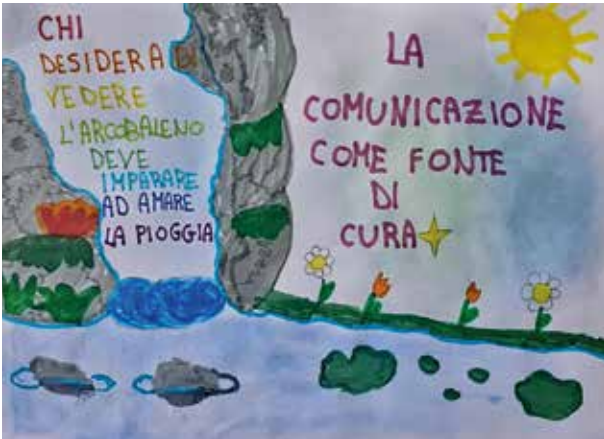 CHI
DESIDERA DI
VEDERE
L'ARCOBALENO
DEVE
IMPARARE
AD AMARE
LA PIOGGIA
LA
COMUNICAZIONE
COME FONTE
DI
CURA